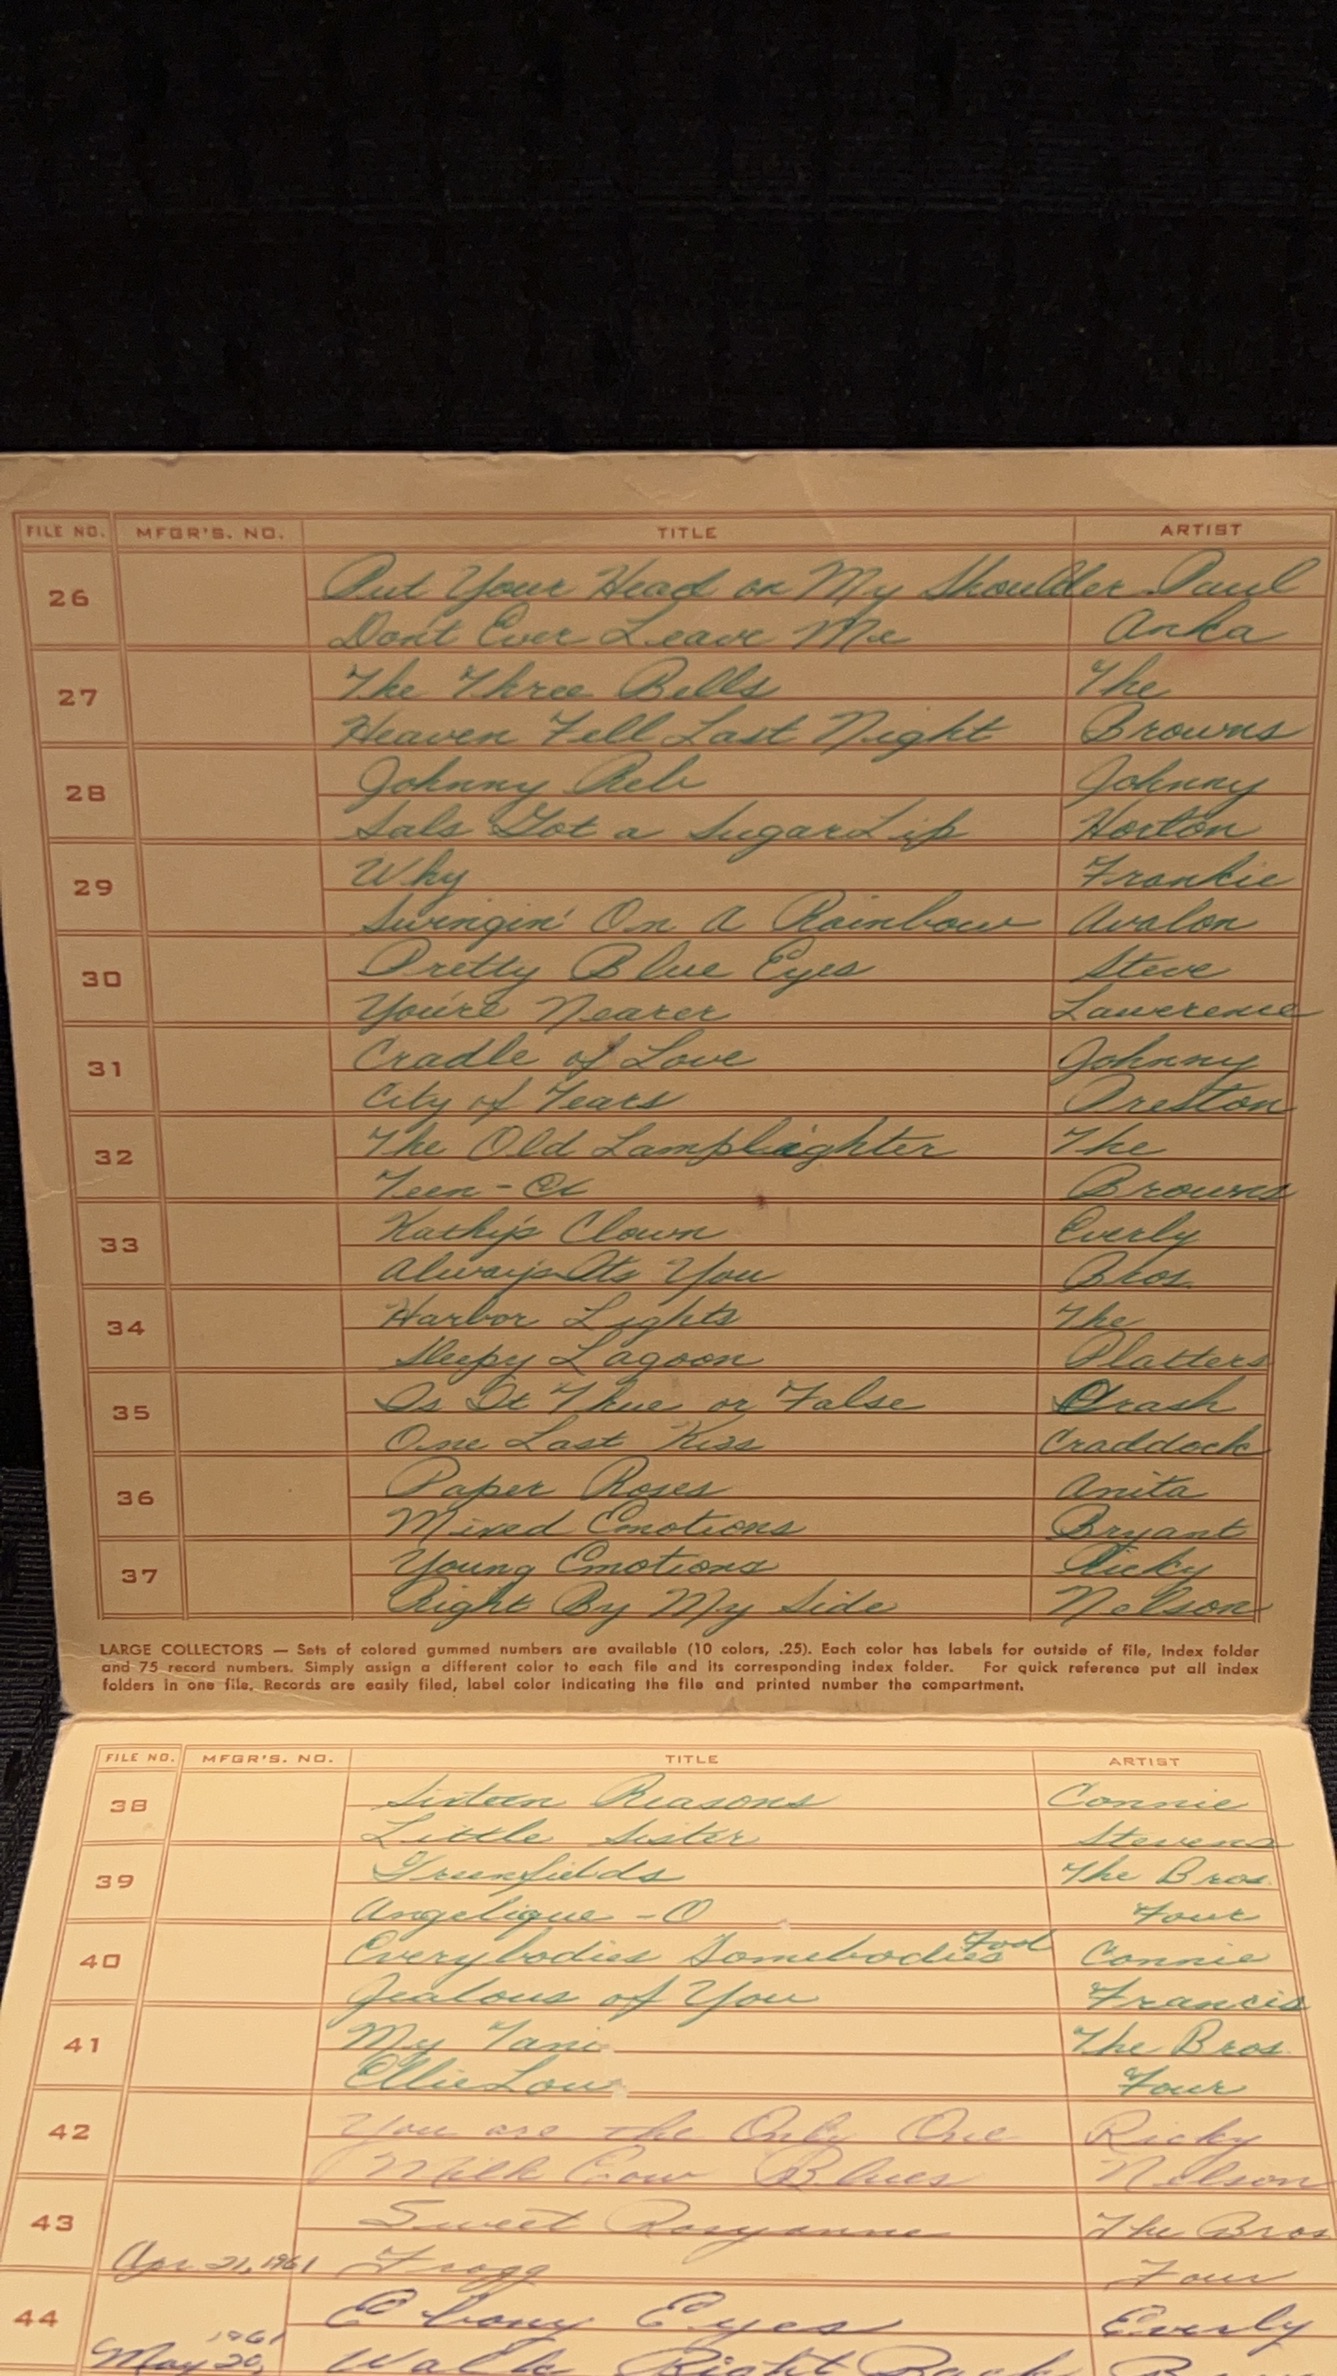 FILE NO. MFGR'S. NO. TITLE ARTIST
26 Put Your Head on My Shoulder Paul
Don't Ever Leave Me Anka
27 The Three Bells The
Heaven Fell Last Night Browns
28 Johnny Reb Johnny
Sals Got a Sugar Lip Horton
29 Why Frankie
Swingin' On A Rainbow Avalon
30 Pretty Blue Eyes Steve
You're Nearer Lawrence
31 Cradle of Love Johnny
City of Tears Preston
32 The Old Lamplighter The
Teen-Ex Browns
33 Kathy's Clown Everly
Always Its You Bros.
34 Harbor Lights The
Sleepy Lagoon Platters
35 Is It True or False Crash
One Last Kiss Craddock
36 Paper Roses Anita
Mixed Emotions Bryant
37 Young Emotions Ricky
Right By My Side Nelson
LARGE COLLECTORS — Sets of colored gummed numbers are available (10 colors, .25). Each color has labels for outside of file, Index folder
and 75 record numbers. Simply assign a different color to each file and its corresponding index folder. For quick reference put all index
folders in one file. Records are easily filed, label color indicating the file and printed number the compartment.
FILE NO. MFGR'S. NO. TITLE ARTIST
38 Sixteen Reasons Connie
Little Sister Stevens
39 Greenfields The Bros.
Angelique-O Four
40 Everybodies Somebodies Fool Connie
Jealous of You Francis
41 My Tani The Bros.
Ellie Lou Four
42 You are the Only One Ricky
Milk Cow Blues Nelson
43 Sweet Rosyanne The Bros
Apr. 21, 1961 Frogg Four
44 Ebony Eyes Everly
1961
May 20, Walk Right Back